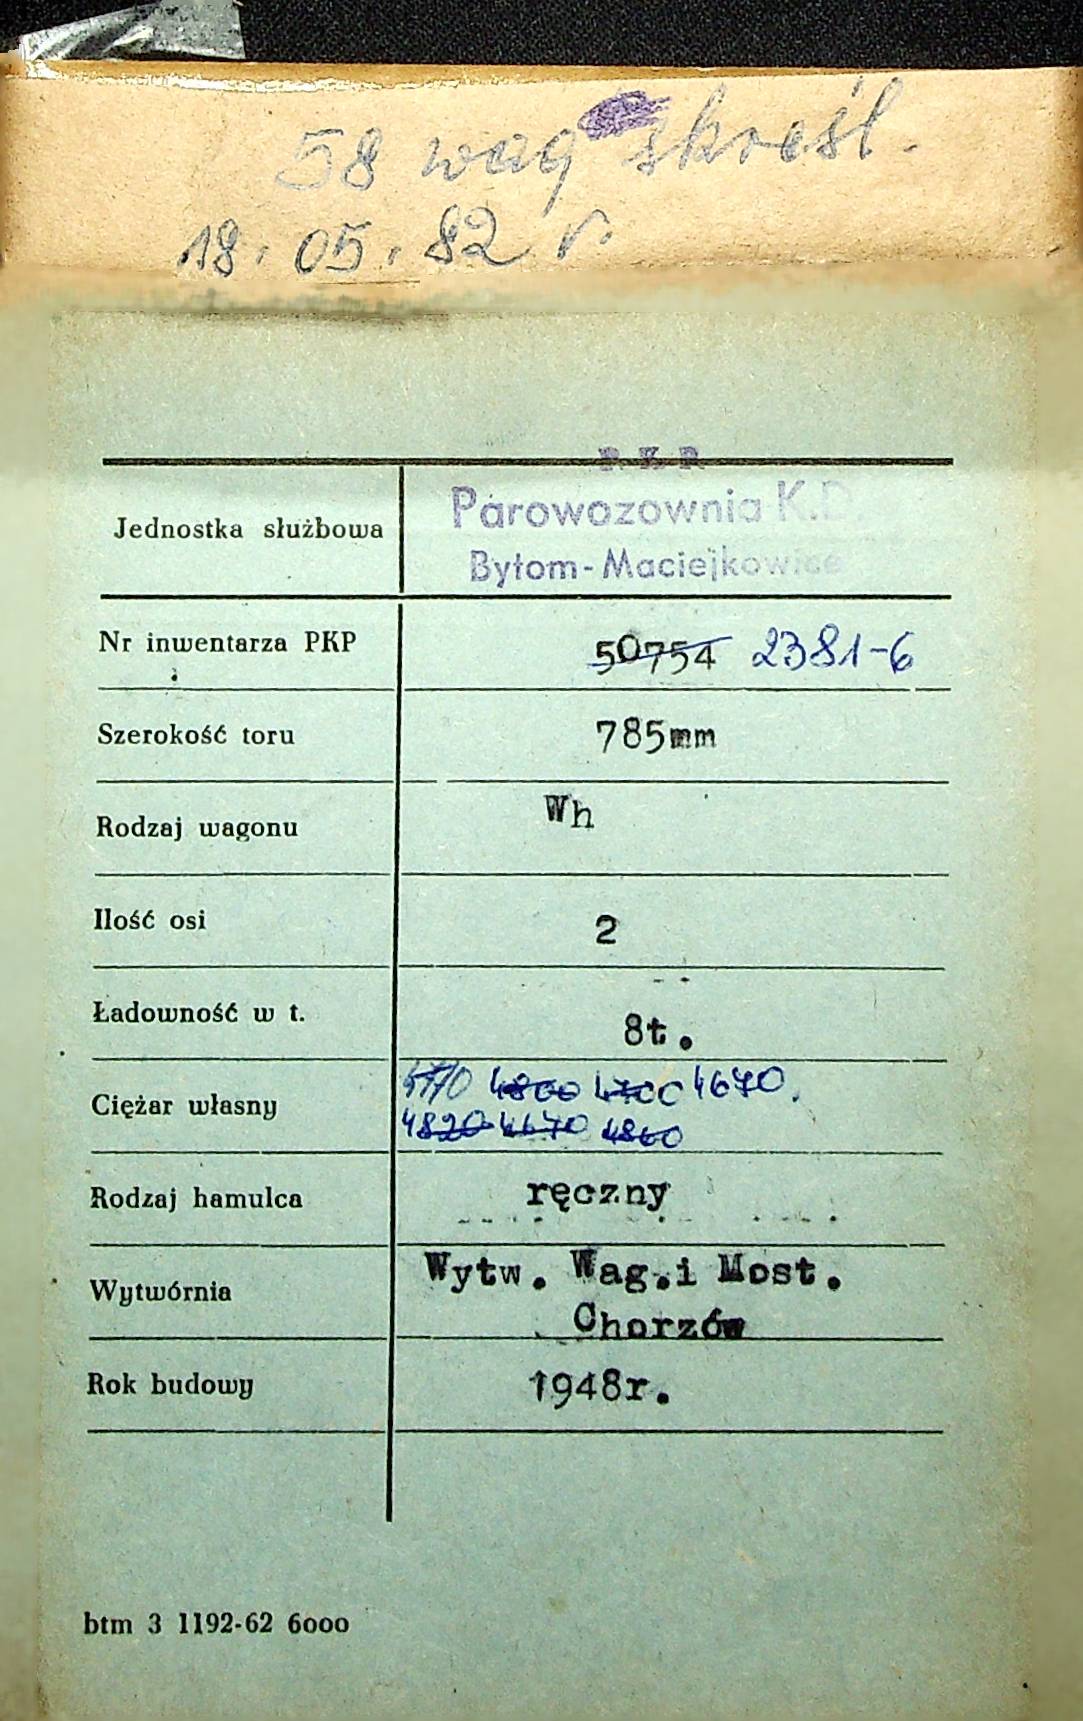 58 wag skreśl.
18.05.82 r.
P.K.P.
Jednostka służbowa Parowozownia K.D
Bytom-Maciejkowice
Nr inwentarza PKP 50754 2381-6
Szerokość toru 785mm
Rodzaj wagonu Wh
Ilość osi 2
Ładowność w t. 8t.
4800 4700 4670.
Ciężar własny
4820 4670 4860
Rodzaj hamulca ręczny
Wytwórnia Wytw. Wag.i Most.
Chorzów
Rok budowy 1948r.
btm 3 1192-62 6000